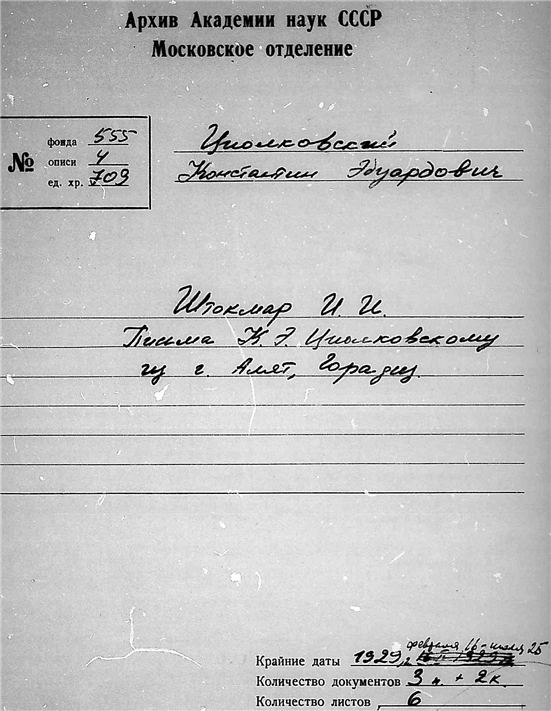 Архив Академии наук СССР
Московское отделение
№
фонда 555
описи 4
ед. хр. 709
Циолковский
Константин Эдуардович
Штокмар И. И.
Письма К. Э. Циолковскому
из г. Алят, Горадиз.
февраля 16 – июля 25
Крайние даты 1929 г.
Количество документов 3 п. + 2 к.
Количество листов 6